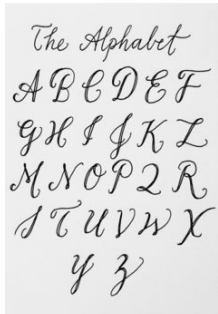 The Alphabet
A B C D E F
G H I J K L
M N O P Q R
S T U V W X
Y Z